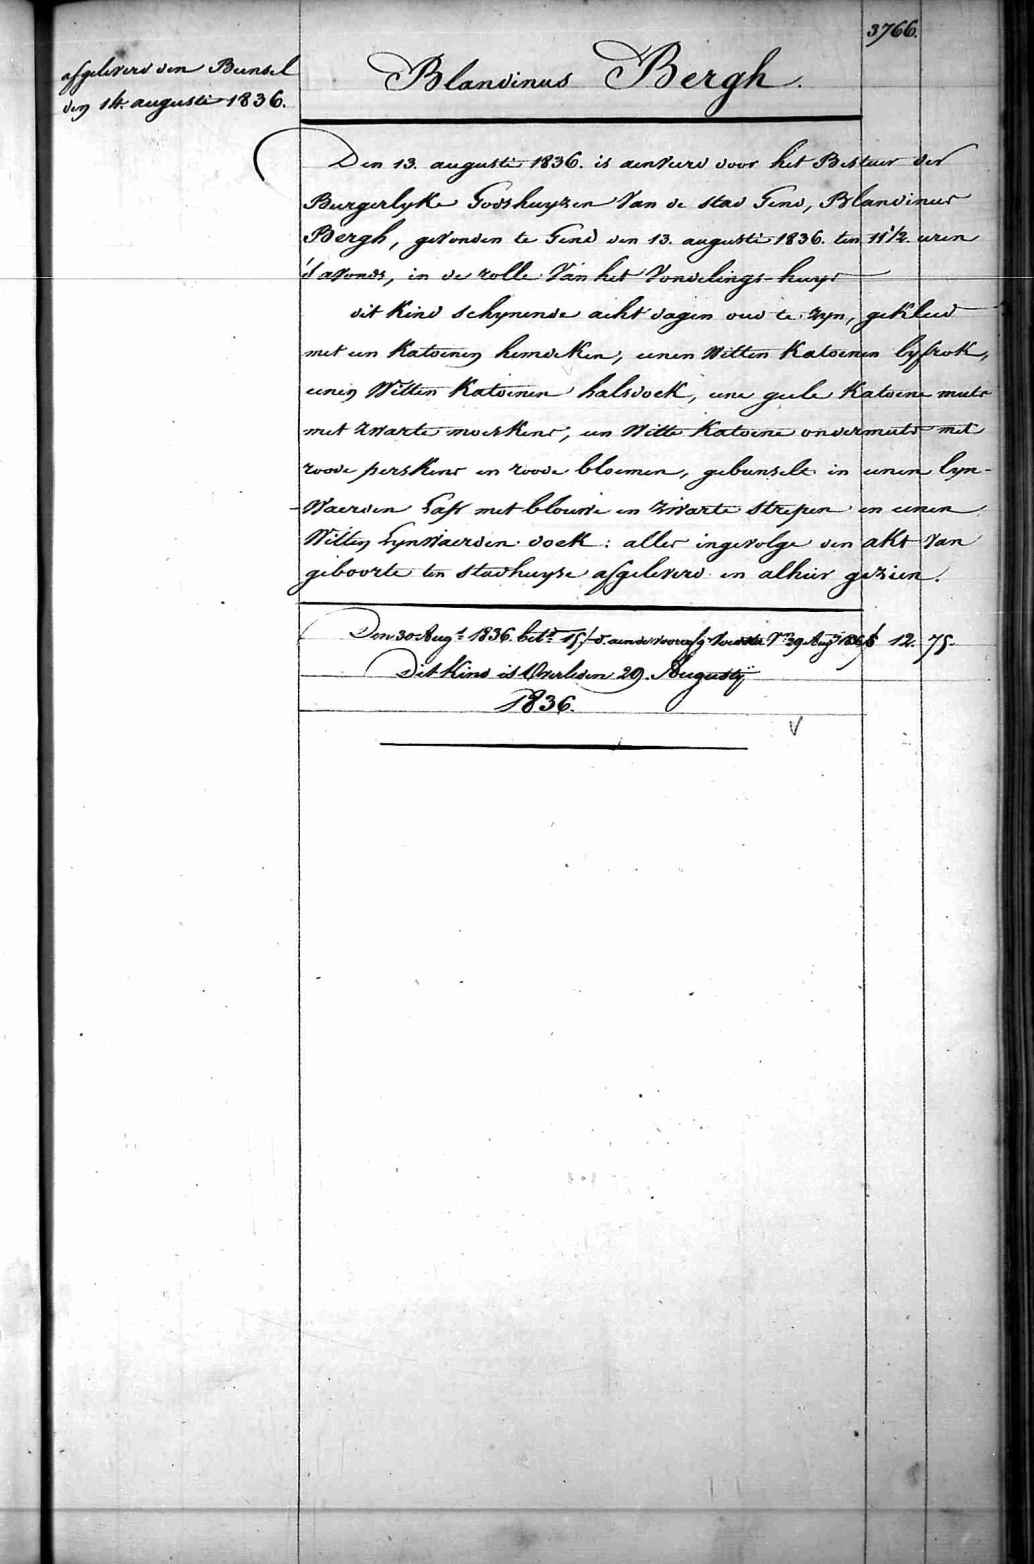 3766.
afgeleverd den Bunsel
den 14. augusti 1836.
Blandinus Bergh.
Den 13. augusti 1836. is aenveird door het Bestuer der
Burgerlyke Godshuyzen van de stad Gend, Blandinus
Bergh, gevonden te Gend den 13. augusti 1836. ten 11 1/2. uren
's avonds, in de rolle van het vondelings-huys
dit kind schynende acht dagen oud te zyn, gekleed
met een katoenen hemdeken, eenen witten katoenen lyfrok,
eenen witten katoenen halsdoek, eene geele katoene muts
met zwarte moeskens, een witte katoene ondermuts met
roode perskens en roode bloemen, gebunselt in eenen lyn-
-waerden Lap met blouwe en zwarte strepen en eenen
witten Lynwaerden doek: alles ingevolge den akt van
geboorte ten stadhuyze afgeleverd en alhier gezien.
Den 30 Aug.t 1836. bet.d 15 29 Aug.t 1836 f 12. 75.
Dit Kind is Overleden 29. Augusty
1836.